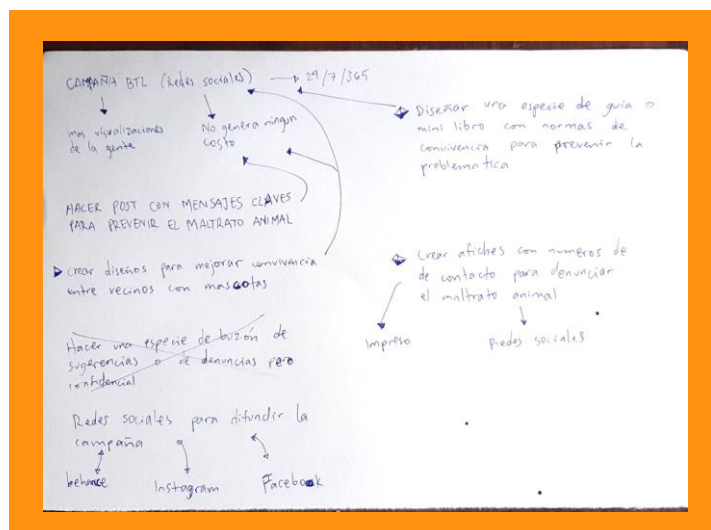 CAMPAÑA BTL (Redes sociales) → 24/7/365
mas visualizaciones
de la gente
No genera ningun
costo
HACER POST CON MENSAJES CLAVES
PARA PREVENIR EL MALTRATO ANIMAL
crear diseños para mejorar convivencia
entre vecinos con mascotas
Hacer una especie de buzón de
sugerencias o de denuncias pero
confidencial
Redes sociales para difundir la
campaña
behance Instagram Facebook
Diseñar una especie de guia o
mini libro con normas de
convivencia para prevenir la
problematica
Crear afiches con numeros de
de contacto para denunciar
el maltrato animal
Impreso Redes sociales